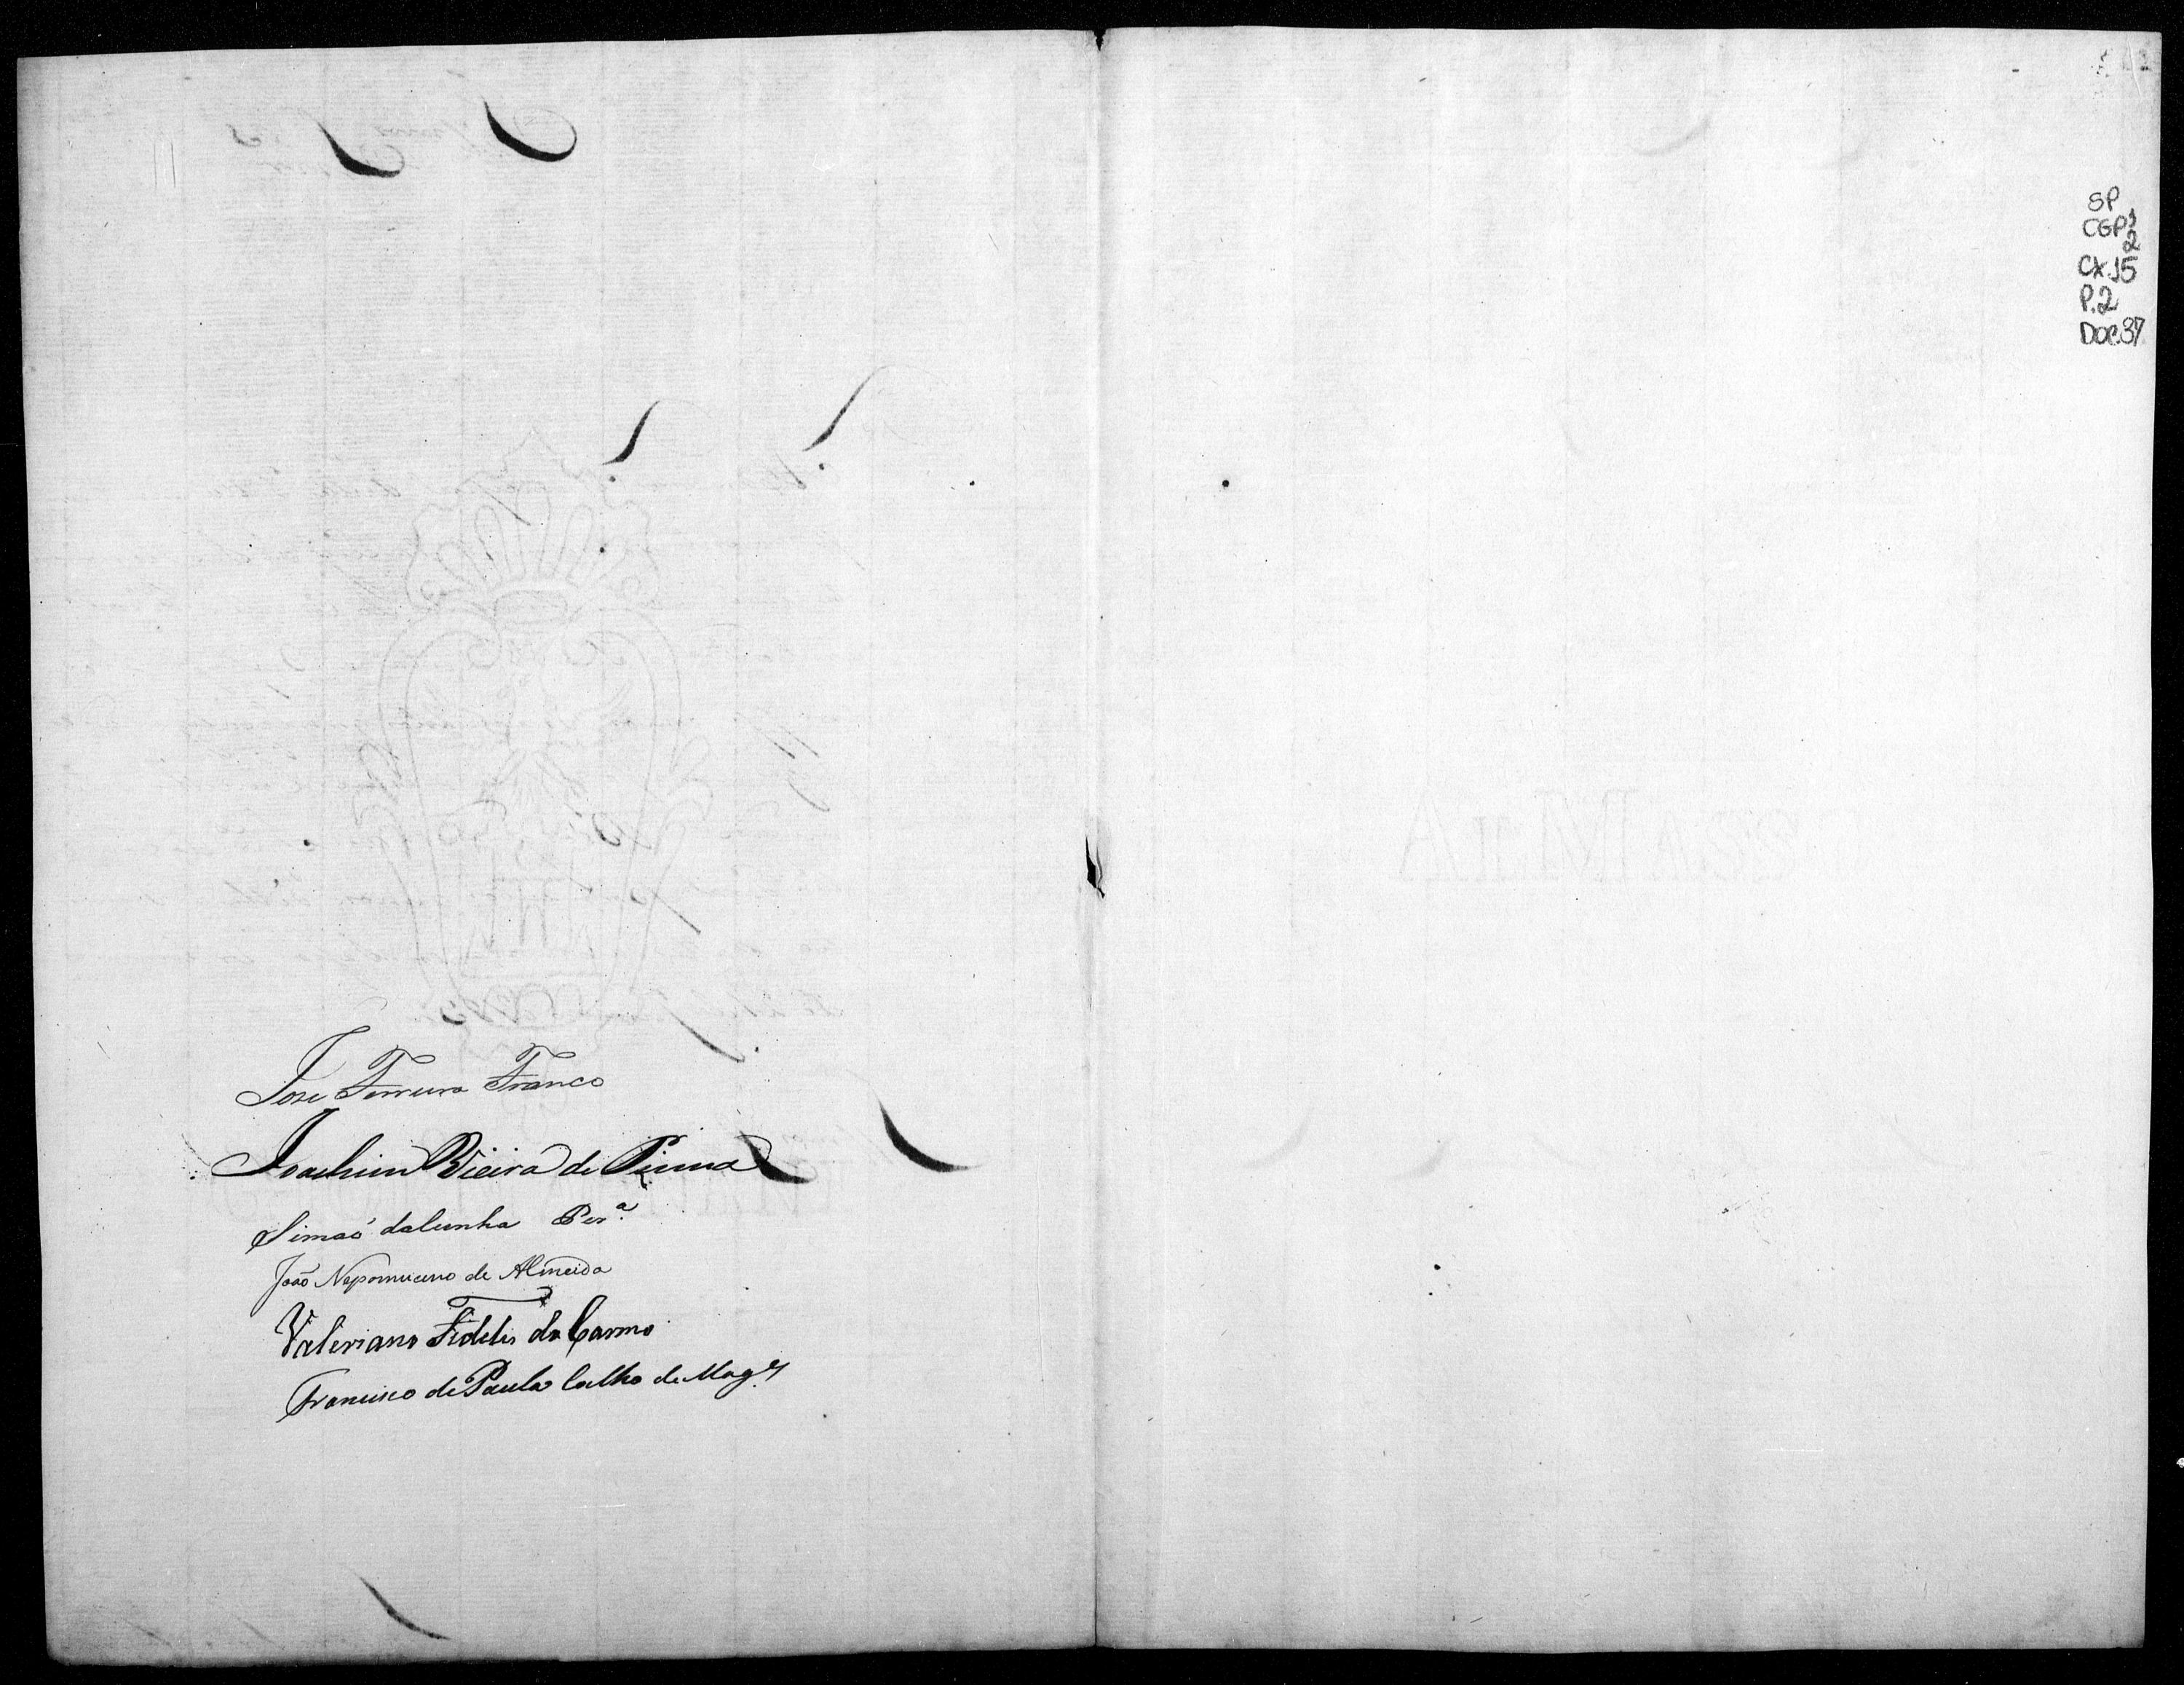 Jose Ferreira Franco
Joachim Vieira de Pinna
Simaõ daCunha Per.ª
João Nepomuceno de Almeida
Valeriano Fidelis do Carmo
Francisco de Paula Coelho de Mag.es
SP
CGP1
2
CX.15
P.2
Doc.37